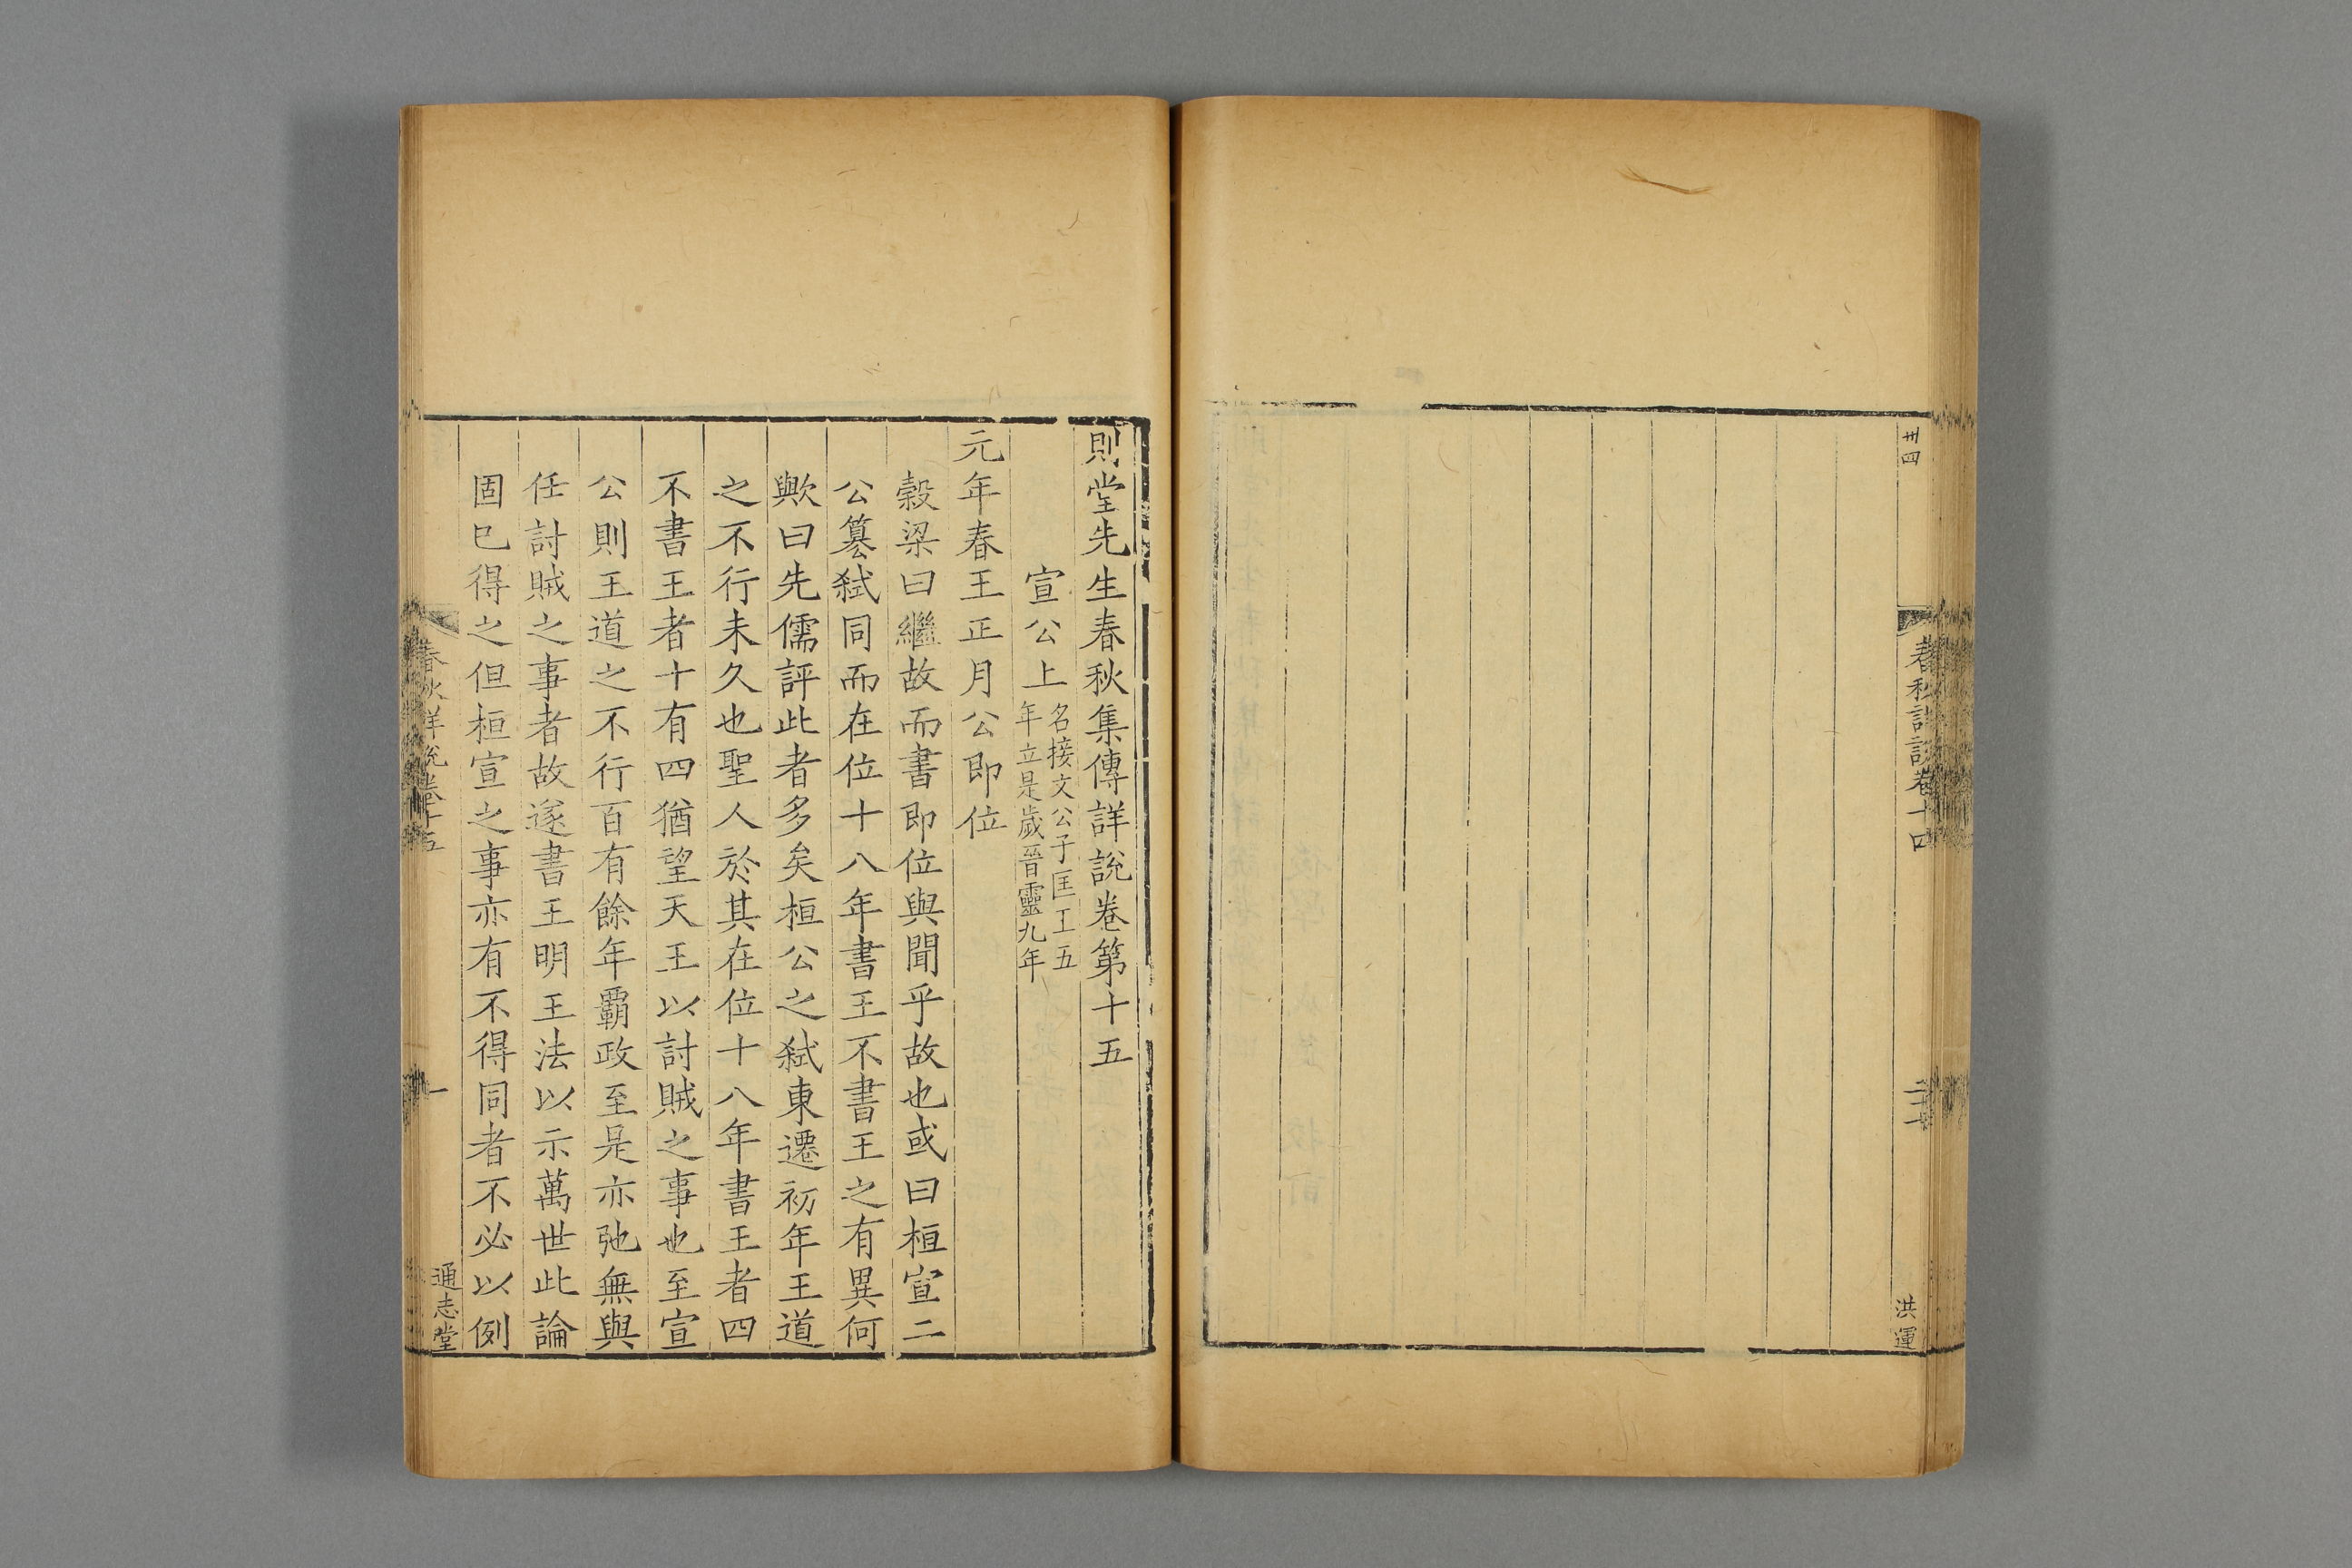 卅四
春秋詳說卷十四
二十七
洪運
則堂先生春秋集傳詳說卷第十五
宣公上
名接文公子匡王五
年立是歲晉靈九年
元年春王正月公即位
穀梁曰繼故而書即位與聞乎故也或曰桓宣二
公簒弑同而在位十八年書王不書王之有異何
歟曰先儒評此者多矣桓公之弑東遷初年王道
之不行未久也聖人於其在位十八年書王者四
不書王者十有四猶望天王以討賊之事也至宣
公則王道之不行百有餘年覇政至是亦弛無與
任討賊之事者故遂書王明王法以示萬世此論
固已得之但桓宣之事亦有不得同者不必以例
春秋詳說卷十五
一
通志堂